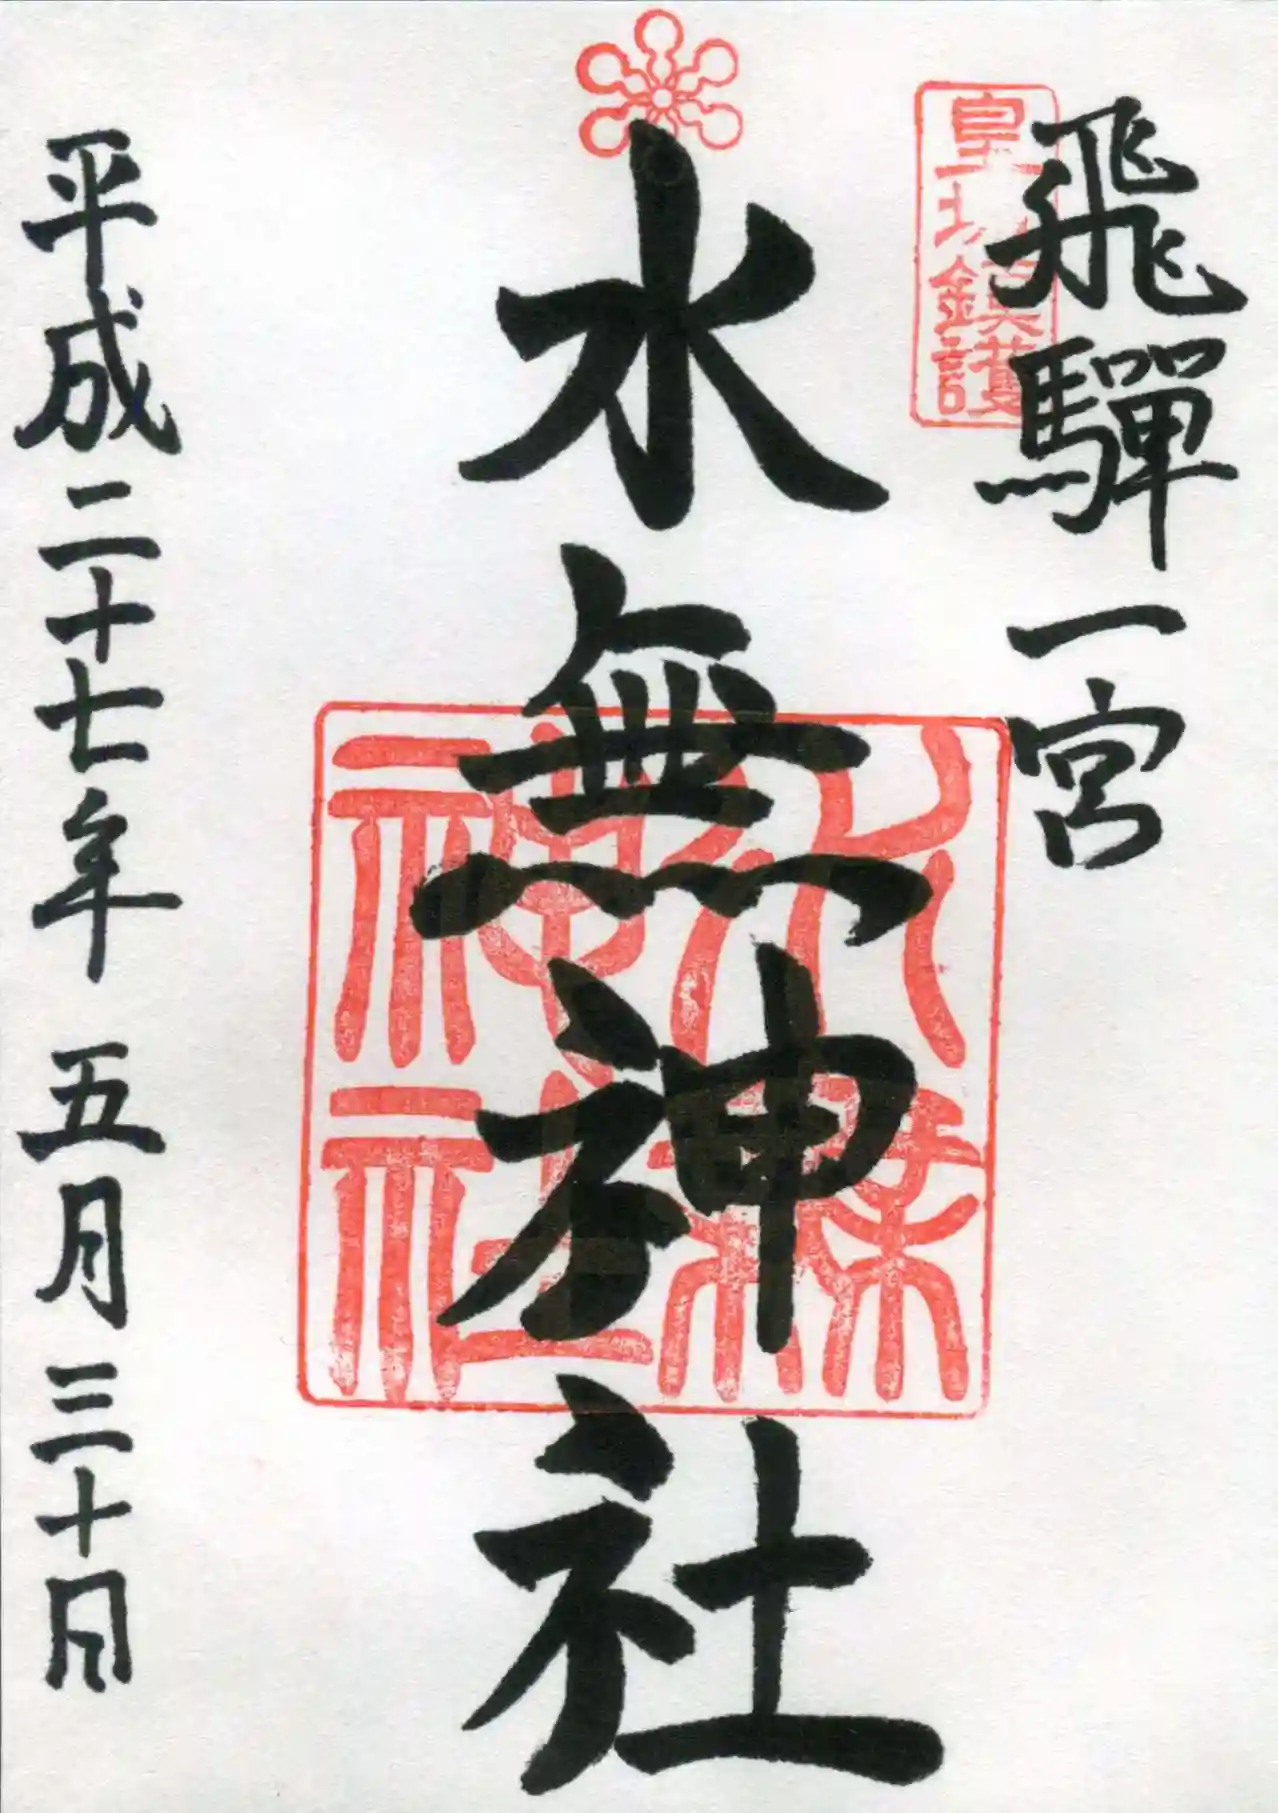 飛騨一宮
水無神社
平成二十七年 五月 三十日
水無神社